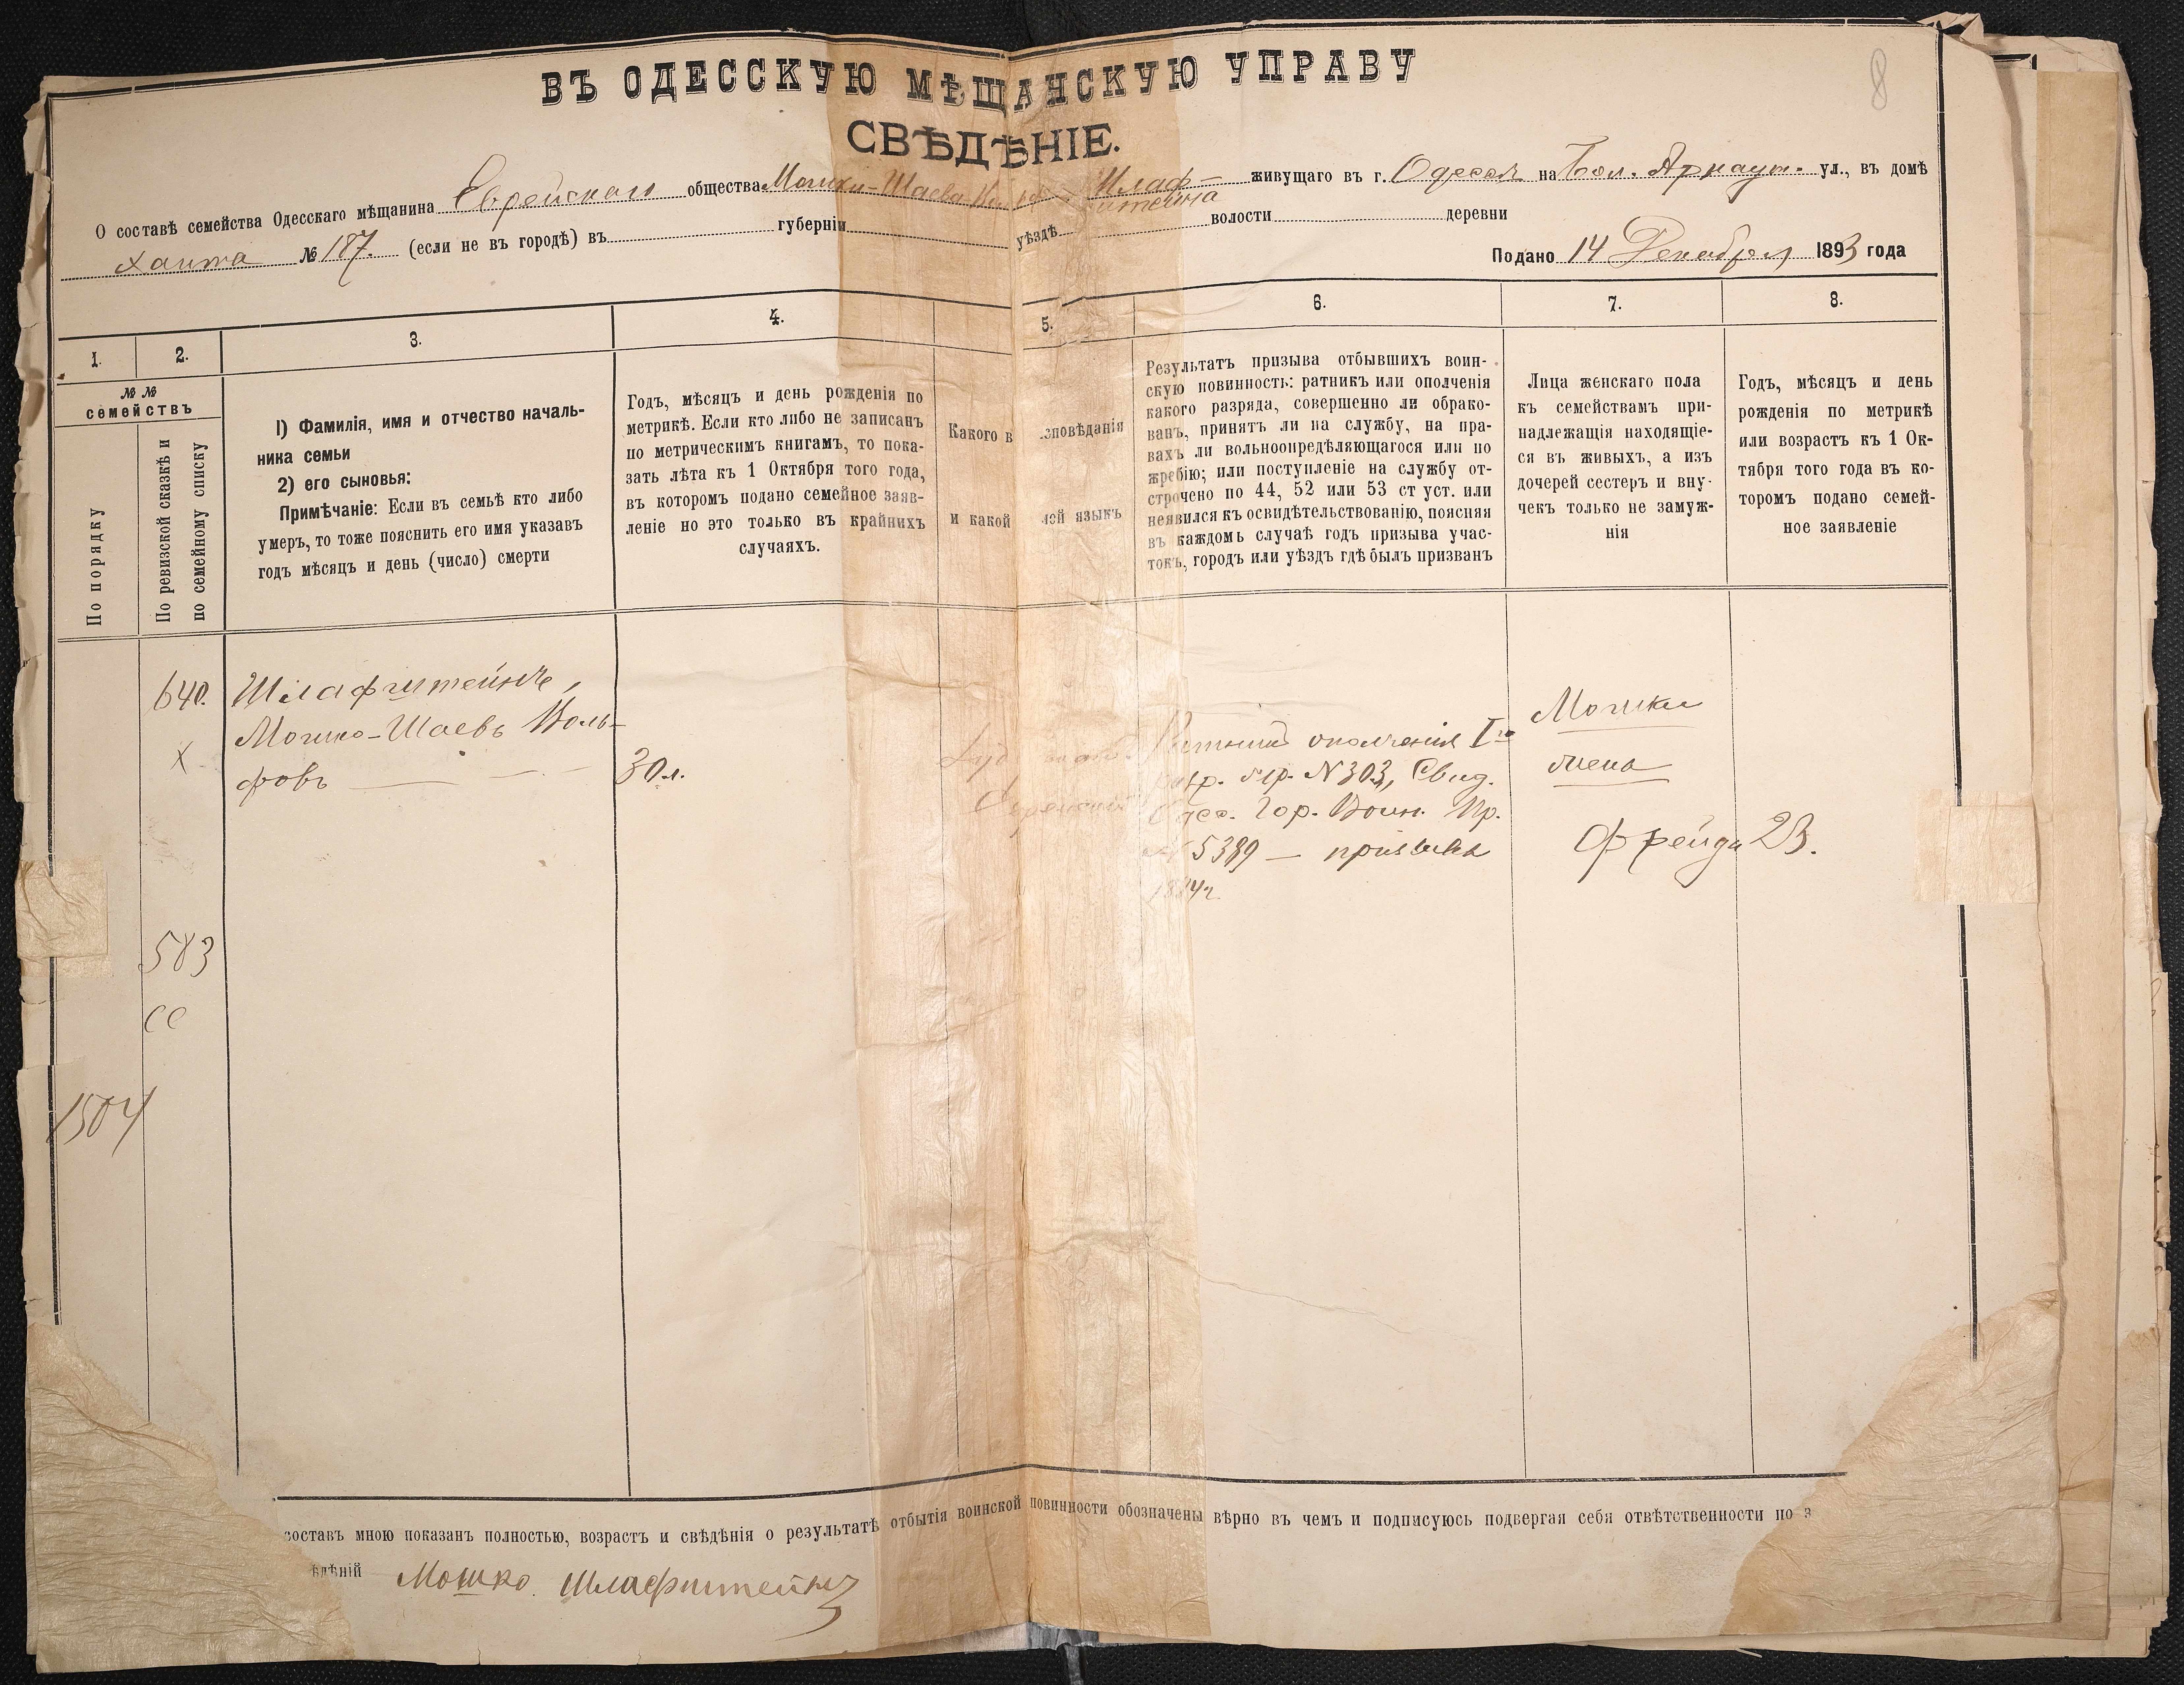 8
ВЪ ОДЕССКУЮ МѢЩАНСКУЮ УПРАВУ
СВѢДѢНІЕ.
О составѣ семейства Одесскаго мѣщанина Еврейскаго общества Мошки-Шаева Шлаф- живущаго въ г. Одессѣ на Бол. Арнаут. ул., въ домѣ
штейна
№ 187. (если не въ городѣ) въ губерніи уѣздѣ волости деревни
Подано 14 Декабря 1893 года
1. 2. 3. 4. 5. 6. 7. 8.
№ №
семействъ
По порядку
По ревизской сказкѣ и
по семейному списку
1) Фамилія, имя и отчество началь-
ника семьи
2) его сыновья:
Примѣчаніе: Если въ семьѣ кто либо
умеръ, то тоже пояснить его имя указавъ
годъ мѣсяцъ и день (число) смерти
Годъ, мѣсяцъ и день рожденія по
метрикѣ. Если кто либо не записанъ
по метрическимъ книгамъ, то пока-
зать лѣта къ 1 Октября того года,
въ которомъ подано семейное заяв-
леніе но это только въ крайнихъ
случаяхъ.
Какого в зповѣданія
и какой ной языкъ
Результатъ призыва отбывшихъ воин-
скую повинность: ратникъ или ополченія
какого разряда, совершенно ли обрако-
ванъ, принятъ ли на службу, на пра-
вахъ ли вольноопредѣляющагося или по
жребію; или поступленіе на службу от-
строчено по 44, 52 или 53 ст уст. или
неявился къ освидѣтельствованію, поясняя
въ каждомъ случаѣ годъ призыва учас-
токъ, городъ или уѣздъ гдѣ былъ призванъ
Лица женскаго пола
къ семействамъ при-
надлежащія находящіе-
ся въ живыхъ, а изъ
дочерей сестеръ и вну-
чекъ только не замуж-
нія
Годъ, мѣсяцъ и день
рожденія по метрикѣ
или возрастъ къ 1 Ок-
тября того года въ ко-
торомъ подано семей-
ное заявленіе
640.
х
Шлафштейнъ,
Мошко-Шаевъ Воль-
фовъ
30 л.
Еврейскій
Ратникъ ополченія I го
разр. N 303, Свид.
Одес. Гор. Воин. Пр.
N 5389 — призыва
1884 г.
Мошки
жена
Фрейда 23.
583
1504
составъ мною показанъ полностью, возрастъ и свѣдѣнія о результатѣ отбытія воинской повинности обозначены вѣрно въ чемъ и подписуюсь подвергая себя отвѣтственности по з
ѣдѣній Мошко Шлафштейнъ